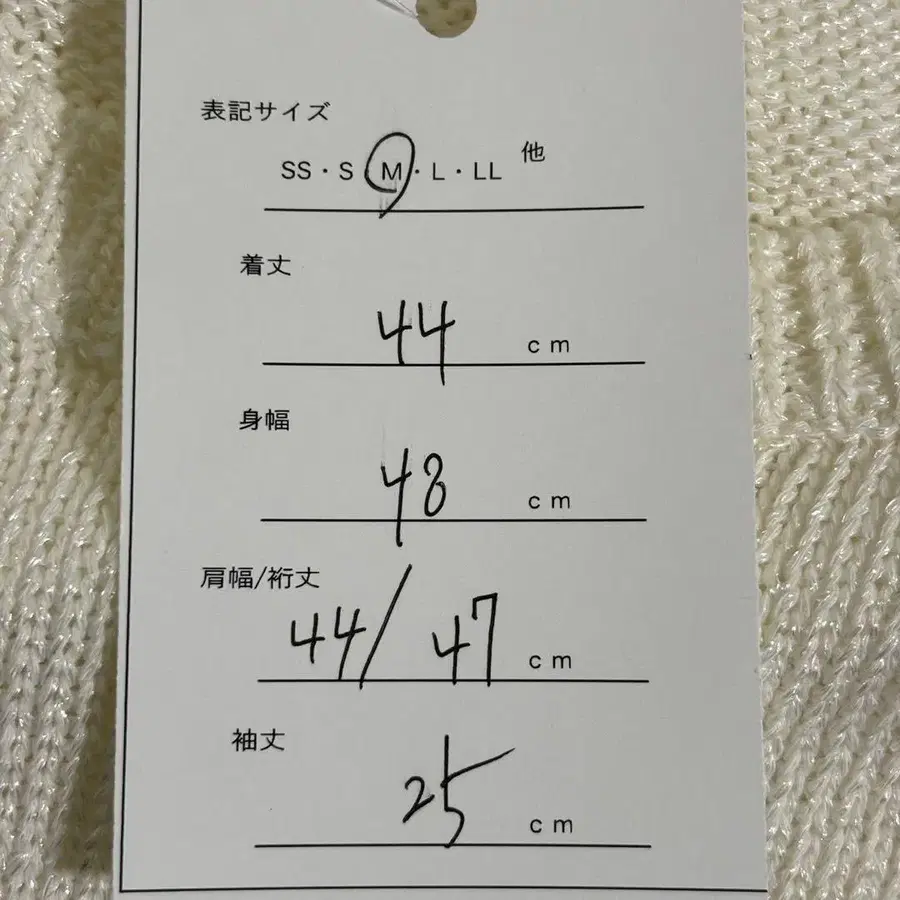 表記サイズ
SS・S・M・L・LL 他
着丈
44 cm
身幅
48 cm
肩幅/裄丈
44/47 cm
袖丈
25 cm